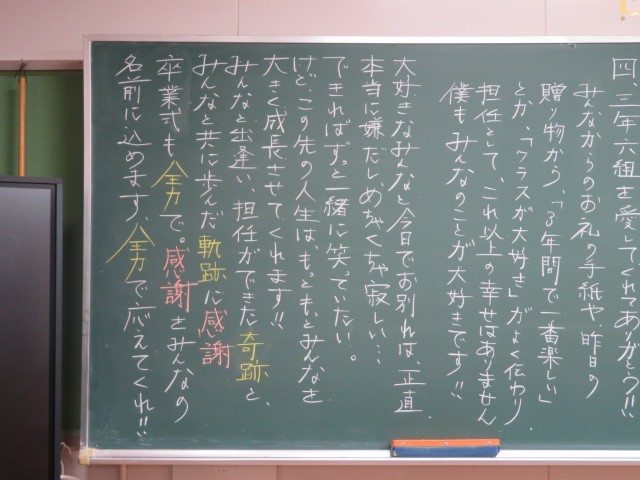 四 三年六組を愛してくれてありがとう!!
みんなからのお礼の手紙や、昨日の
贈り物から、「3年間で一番楽しい」
とか、「クラスが大好き」がよく伝わり、
担任として、これ以上の幸せはありません
僕もみんなのことが大好きです!!
大好きなみんなと今日でお別れは、正直
本当に嫌だし、めちゃくちゃ寂しい…
できればずっと一緒に笑っていたい。
けど、この先の人生は、もっともっとみんなを
大きく成長させてくれます!!
みんなと出逢い、担任ができた奇跡と、
みんなと共に歩んだ軌跡に感謝
卒業式も全力で。感謝をみんなの
名前に込めます、全力で応えてくれ!!